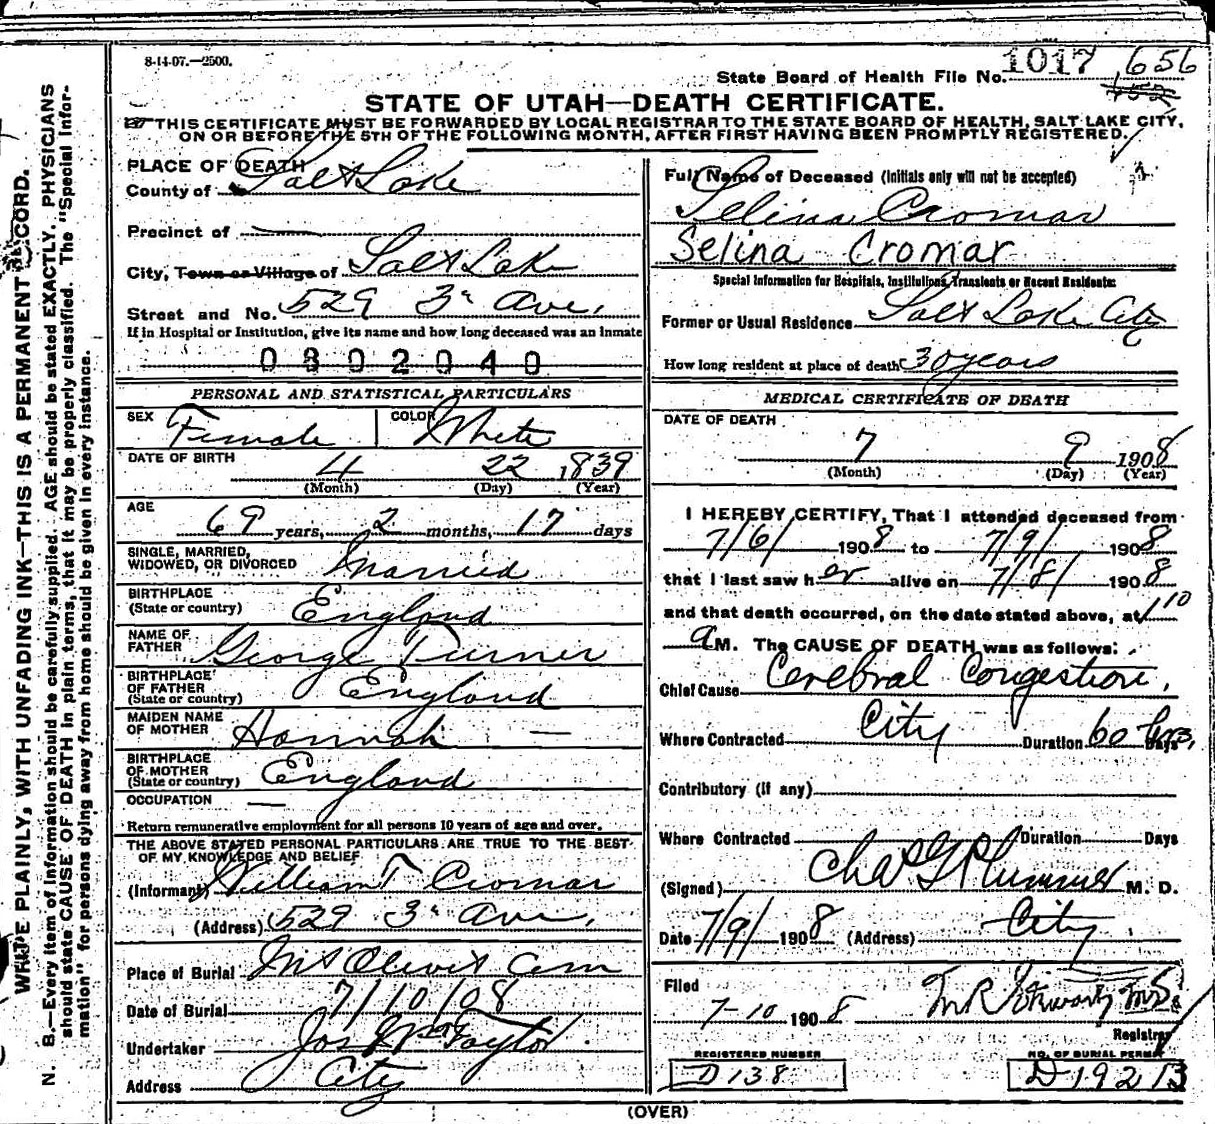 8-14-07.—2500.
State Board of Health File No. 1017 656
152
STATE OF UTAH—DEATH CERTIFICATE.
THIS CERTIFICATE MUST BE FORWARDED BY LOCAL REGISTRAR TO THE STATE BOARD OF HEALTH, SALT LAKE CITY,
ON OR BEFORE THE 5TH OF THE FOLLOWING MONTH, AFTER FIRST HAVING BEEN PROMPTLY REGISTERED.
WRITE PLAINLY, WITH UNFADING INK—THIS IS A PERMANENT RECORD.
N. B.—Every item of information should be carefully supplied. AGE should be stated EXACTLY. PHYSICIANS
should state CAUSE OF DEATH in plain terms, that it may be properly classified. The "Special Infor-
mation" for persons dying away from home should be given in every instance.
PLACE OF DEATH
County of Salt Lake
Precinct of —
City, Town or Village of Salt Lake
Street and No. 529 3r Ave,
If in Hospital or Institution, give its name and how long deceased was an inmate
0802040
PERSONAL AND STATISTICAL PARTICULARS
SEX Female COLOR White
DATE OF BIRTH 4 22 1839
(Month) (Day) (Year)
AGE 69 years, 2 months, 17 days
SINGLE, MARRIED,
WIDOWED, OR DIVORCED Married
BIRTHPLACE
(State or country) England
NAME OF
FATHER George Turner
BIRTHPLACE
OF FATHER
(State or country) England
MAIDEN NAME
OF MOTHER Hannah —
BIRTHPLACE
OF MOTHER
(State or country) England
OCCUPATION —
Return remunerative employment for all persons 10 years of age and over.
THE ABOVE STATED PERSONAL PARTICULARS ARE TRUE TO THE BEST
OF MY KNOWLEDGE AND BELIEF
(Informant) William T Cromar
(Address) 529 3r Ave,
Place of Burial Mt Olivet Cem
Date of Burial 7/10/08
Undertaker Jos Wm Taylor
Address City
Full Name of Deceased (Initials only will not be accepted)
Selina Cromar
Selina Cromar
Special Information for Hospitals, Institutions, Transients or Recent Residents:
Former or Usual Residence Salt Lake City
How long resident at place of death 30 years
MEDICAL CERTIFICATE OF DEATH
DATE OF DEATH
7 9 1908
(Month) (Day) (Year)
I HEREBY CERTIFY, That I attended deceased from
7/6/ 1908 to 7/9/ 1908
that I last saw her alive on 7/8/ 1908
and that death occurred, on the date stated above, at 1 10
a M. The CAUSE OF DEATH was as follows:
Chief Cause Cerebral Congestion,
Where Contracted City Duration 60 hrs, Days
Contributory (if any)
Where Contracted Duration Days
(Signed) Chas G Plummer M. D.
Date 7/9/ 1908 (Address) City.
Filed
7-10 1908 M R Stewart M.D.
Registrar
REGISTERED NUMBER NO. OF BURIAL PERMIT
D 138 D 19213
(OVER)